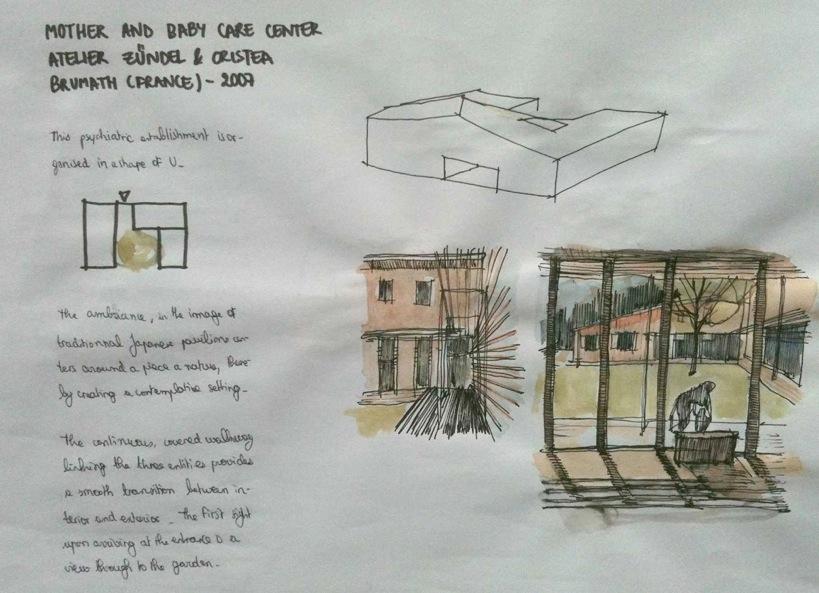 MOTHER AND BABY CARE CENTER
ATELIER ZÜNDEL & CRISTEA
BRUMATH (FRANCE) - 2007
This psychiatric establishment is or-
ganised in a shape of U_
The ambiance, in the image of
traditionnal Japanese pavilions cen-
ters around a piece a nature, there-
by creating a contemplative setting_
The continuous, covered walkway
linking the three entities provides
a smooth transition between in-
terior and exterior_ The first sight
upon arriving at the entrance is a
view through to the garden_